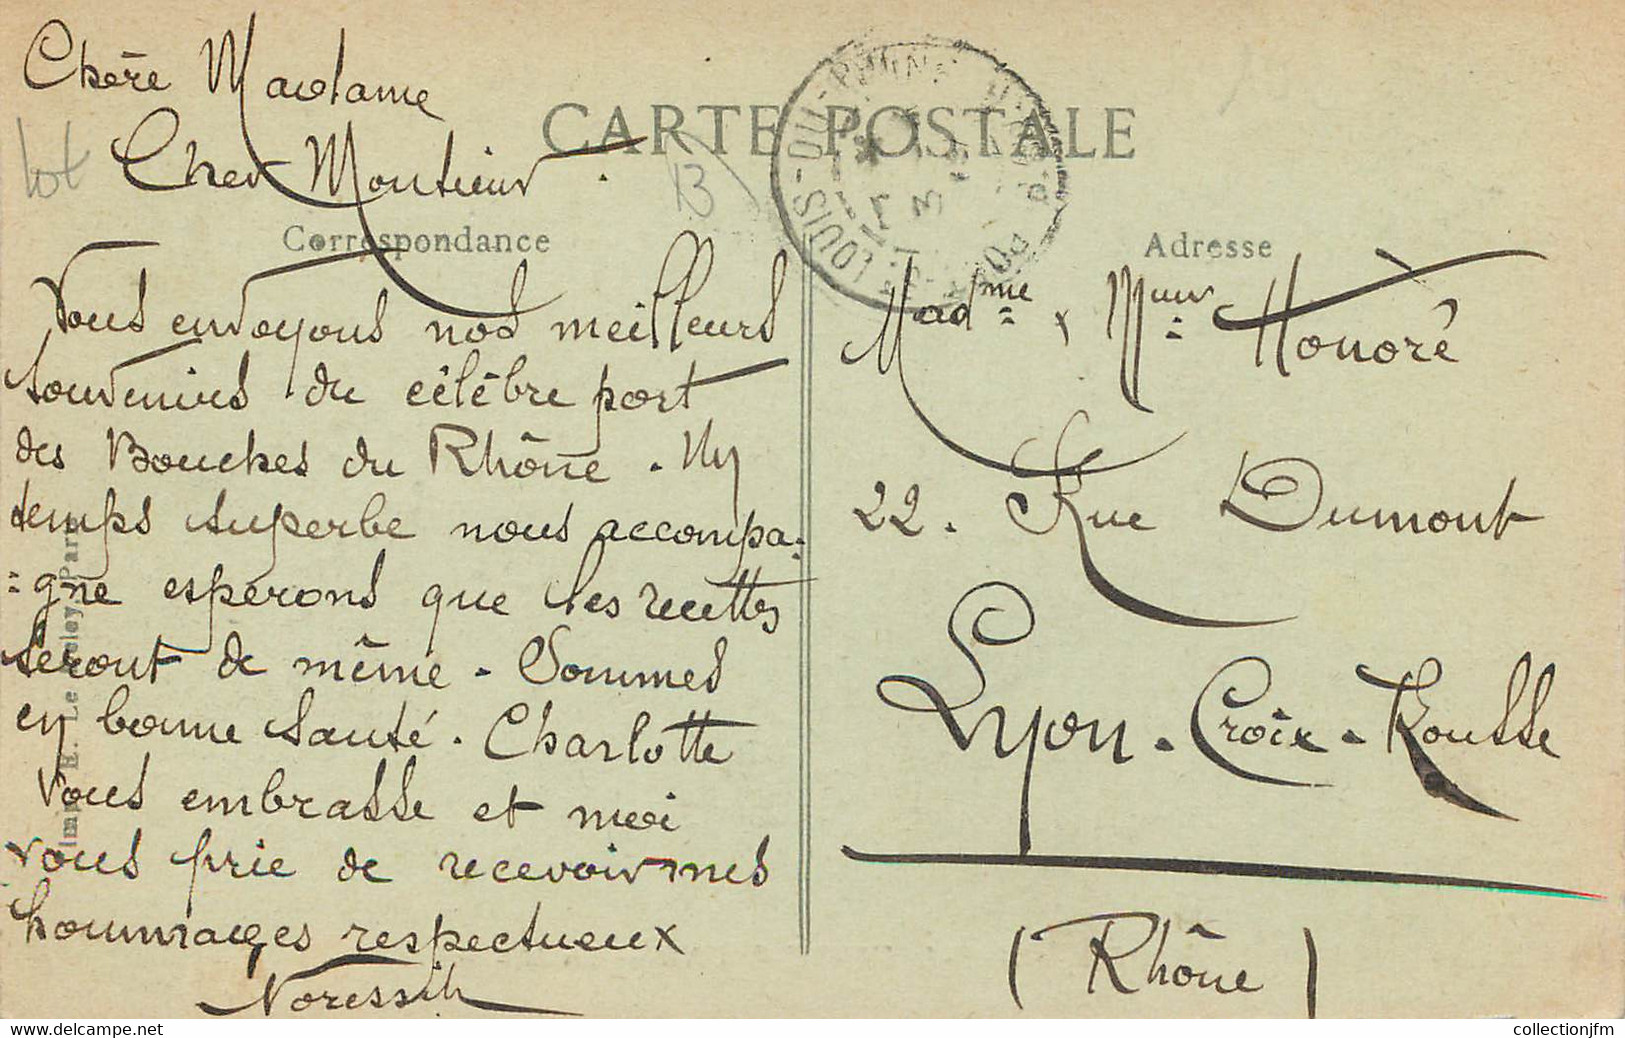 Chère Madame
Cher Monsieur.
lot
CARTE POSTALE
13
Correspondance
Vous envoyons nos meilleurs
souvenirs du célèbre port
des Bouches du Rhône. Un
temps superbe nous accompa-
-gne esperons que les recettes
seront de même. Sommes
en bonne santé. Charlotte
vous embrasse et moi
vous prie de recevoir mes
hommages respectueux
Noressih
Adresse
Mad^me x M^eur Honoré
22. Rue Dumont
Lyon. Croix-Rousse
(Rhône)
PORT-ST-LOUIS-DU-RHÔNE
Imp. E. Le Deley, Paris
collectionjfm